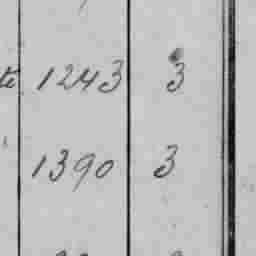 1243 3
1390 3